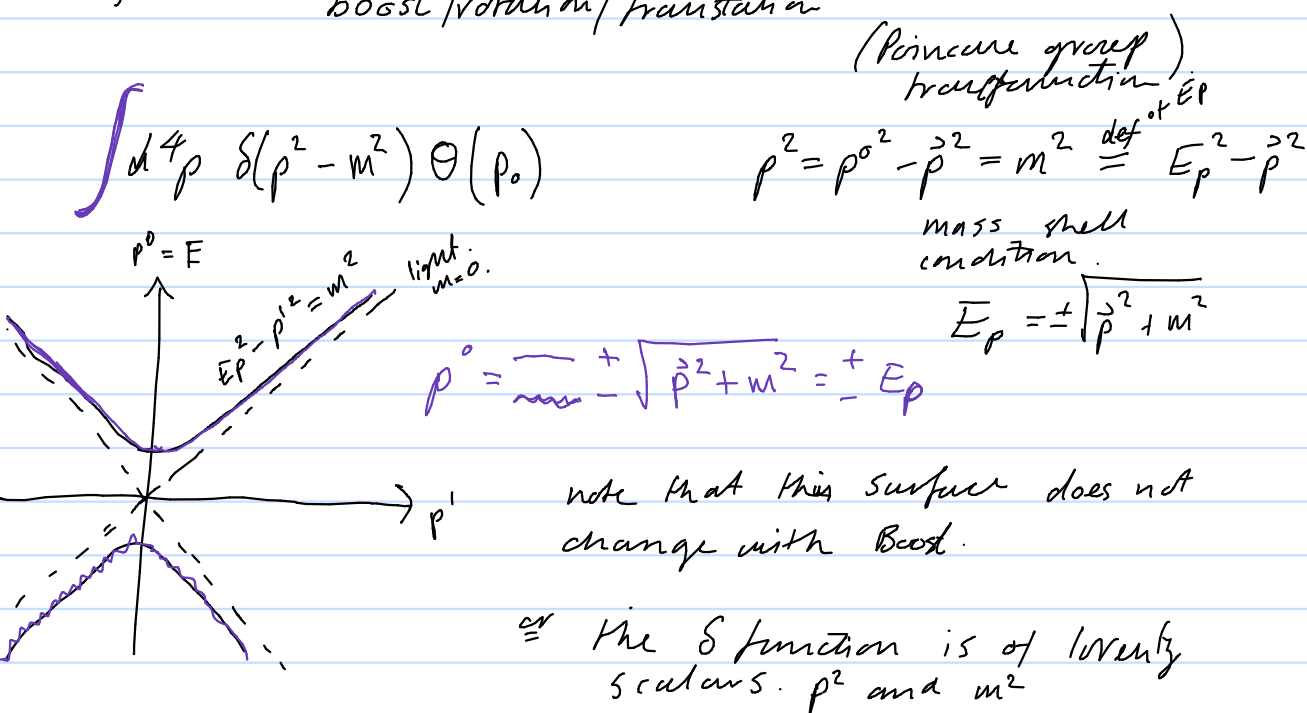 boost/rotation/translation
(Poincare group
transformation).
∫d⁴p δ(p² - m²) Θ(p₀)
p² = p⁰² - p⃗² = m² def of Ep = Ep² - p⃗²
mass shell
condition.
Ep = ±√(p⃗² + m²)
p⁰ = E
Ep² - p¹² = m²
light.
m=0.
p⁰ = ±√(p⃗² + m²) = ± Ep
p¹
note that this surface does not
change with Boost.
or the δ function is of lorentz
scalars. p² and m²